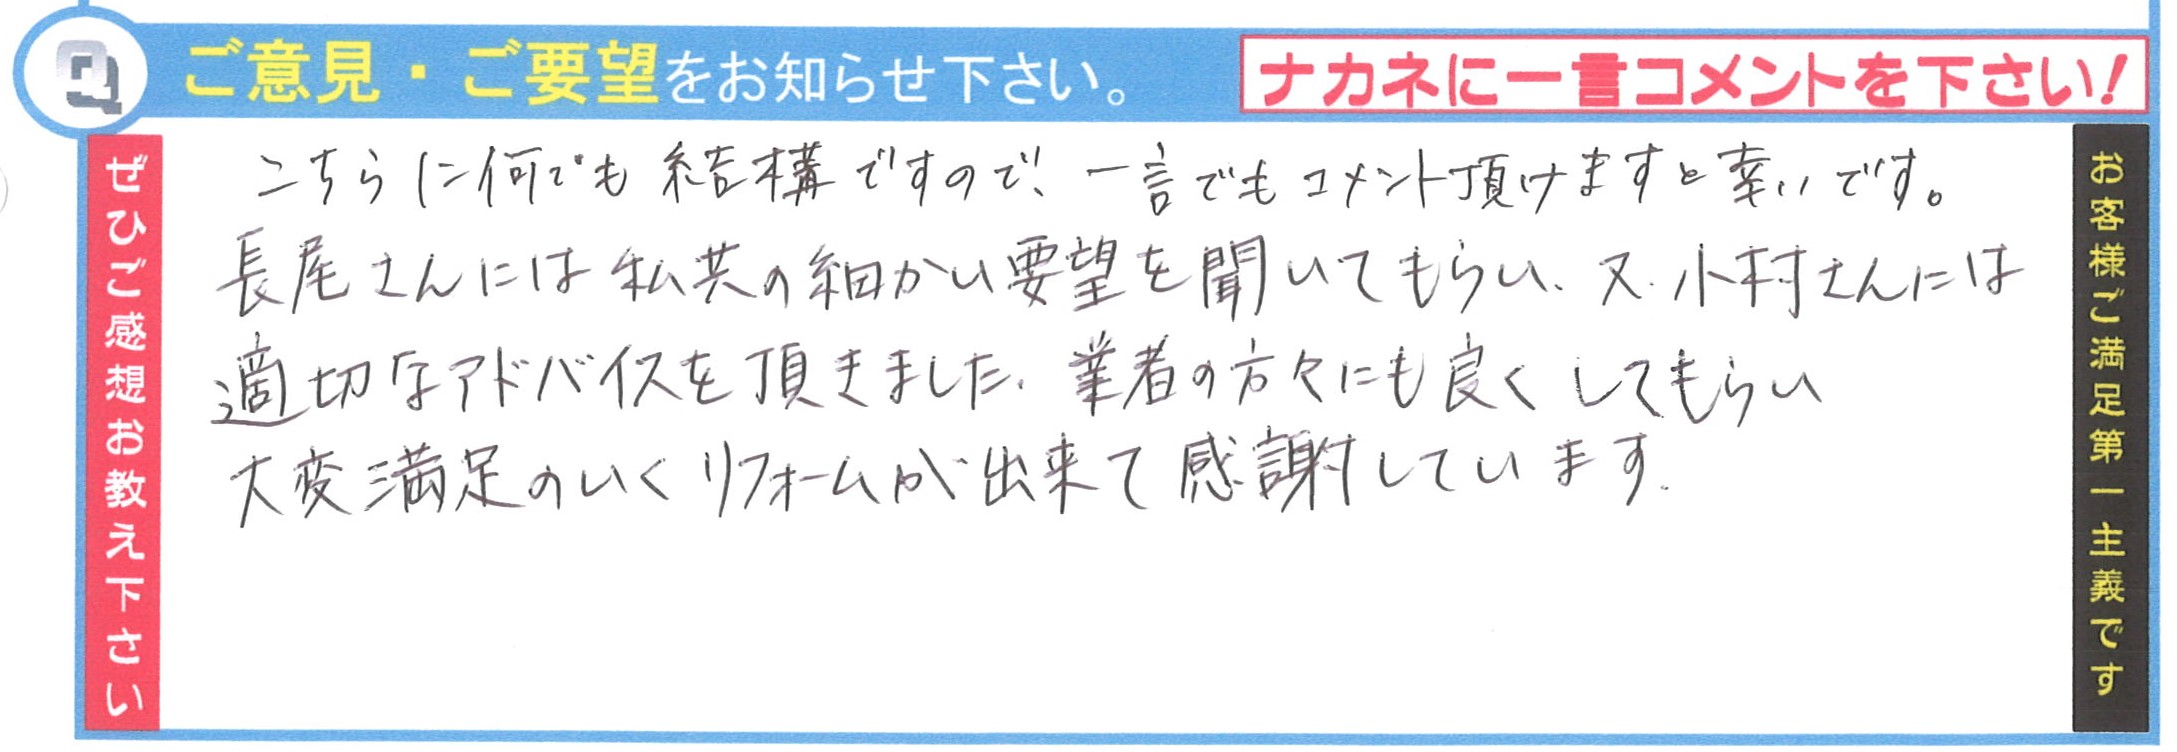 Q ご意見・ご要望をお知らせ下さい。
ナカネに一言コメントを下さい!
ぜひご感想お教え下さい
こちらに何でも結構ですので、一言でもコメント頂けますと幸いです。
長尾さんには私共の細かい要望を聞いてもらい、又、小村さんには
適切なアドバイスを頂きました、業者の方々にも良くしてもらい
大変満足のいくリフォームが出来て感謝しています.
お客様ご満足第一主義です